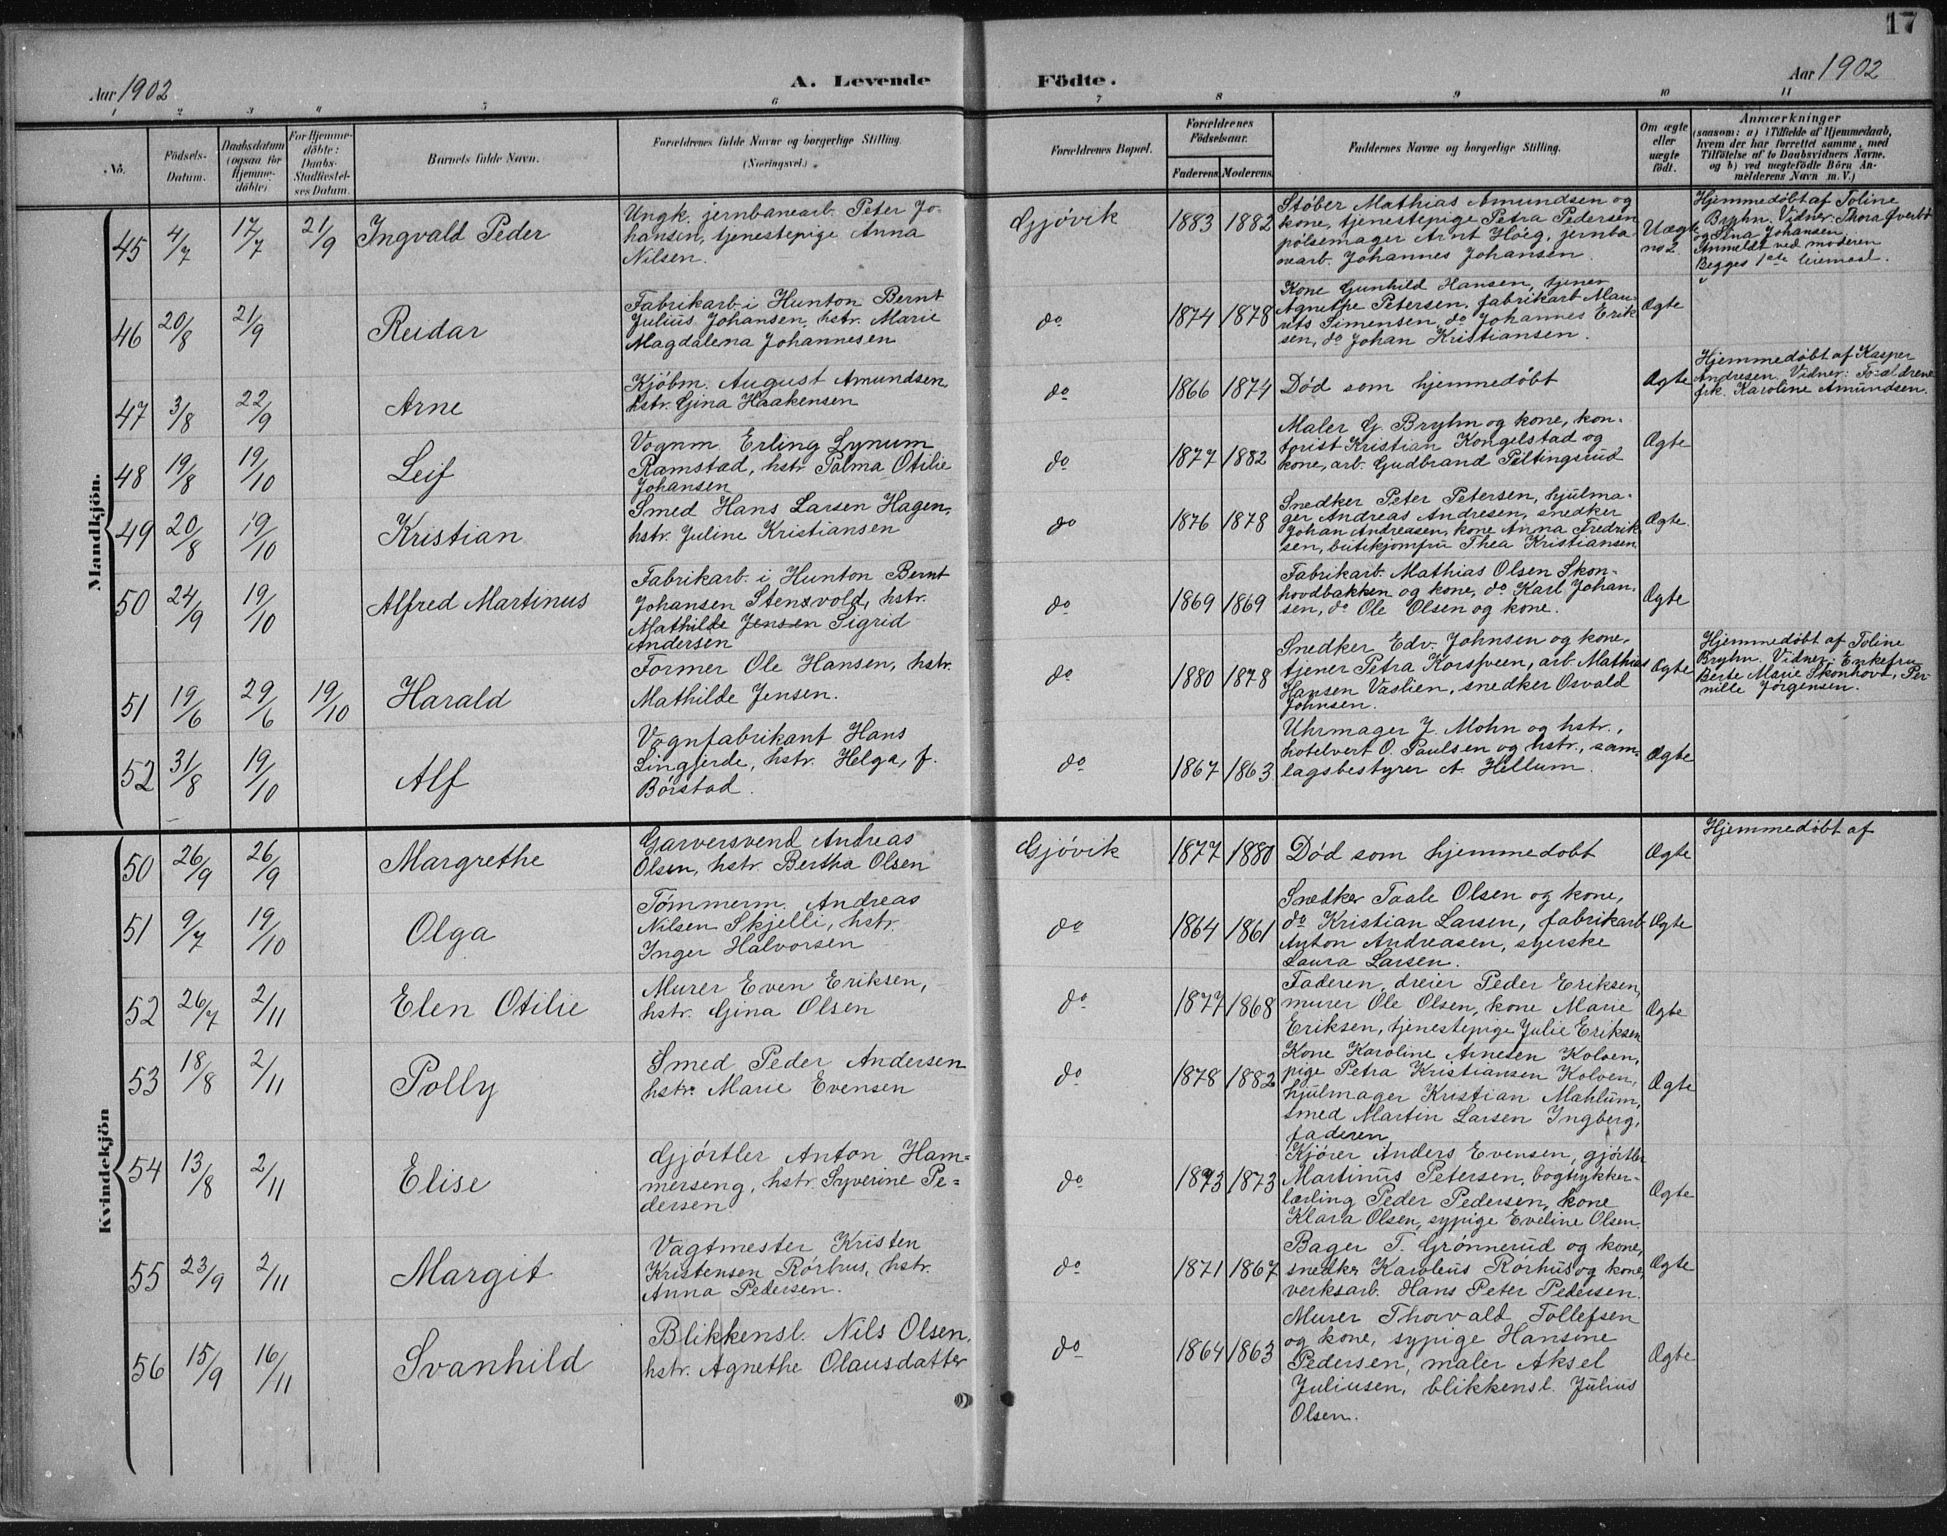 17
Aar 1902
A. Levende
Födte.
Aar 1902
1 2 3 4 5 6 7 8 9 10 11
No.
Födsels-
Datum.
Daabsdatum
(ogsaa for
Hjemme-
döbte)
For Hjemme-
döbte:
Daabs-
Stadfæstel-
ses Datum.
Barnets fulde Navn.
Forældrenes fulde Navne og borgerlige Stilling.
(Næringsvei.)
Forældrenes Bopæl.
Forældrenes
Födselsaar.
Faderens. Moderens.
Faddernes Navne og borgerlige Stilling.
Om ægte
eller
uægte
födt.
Anmærkninger
(saasom: a) i Tilfælde af Hjemmedaab,
hvem der har forrettet samme, med
Tilföielse af to Daabsvidners Navne,
og b) ved uægtefödte Börn An-
melderens Navn m. V.)
Mandkjön.
45 4/7 17/7 21/9 Ingvald Peder
Ungk. jernbanearb. Peter Jo-
hansen, tjenestepige Anna
Nilsen.
Gjövik 1883 1882
Støber Mathias Amundsen og
kone, tjenestepige Petra Pedersen
pølsemager Arnt Höeg, jernba-
nearb. Johannes Johansen.
Uægte
no 2.
Hjemmedøbt af Toline
Bryhn. Vidner: Thora Øverbö
og Stina Johansen.
Anmeldt ved moderen
Begges 1ste leiermaal.
46 20/8 21/9 Reidar
Fabrikarb. i Hunton Bernt
Julius Johansen, hstr. Marie
Magdalena Johannesen
do 1874 1878
Kone Gunhild Hansen, tjener
Agnethe Petersen, fabrikarb. Mau-
rits Simensen, do Johannes Erik
sen, do Johan Kristiansen.
Ægte
47 3/8 22/9 Arne
Kjöbm. August Amundsen
hstr. Gina Haakensen
do 1866 1874 Död som hjemmedöbt Ægte
Hjemmedøbt af Kasper
Andresen. Vidner: Forældrene
frk. Karoline Amundsen.
48 19/8 19/10 Leif
Vognm Erling Lynum
Ramstad, hstr. Palma Otilie
Johansen
do 1877 1882
Maler G. Bryhn og kone, kon-
torist Kristian Kongelstad og
kone, arb. Gudbrand Piltingsrud
Ægte
49 20/8 19/10 Kristian
Smed Hans Larsen Hagen,
hstr. Juline Kristiansen
do 1876 1878
Snedker Peter Petersen, hjulma-
ger Andreas Andresen, snedker
Johan Andreasen, kone Anna Fredrik
sen, butikjomfru Thea Kristiansen
Ægte
50 24/9 19/10 Alfred Martinus
Fabrikarb. i Hunton Bernt
Johansen Stensvold, hstr.
Mathilde Jensen Sigrid
Andersen
do 1869 1869
Fabrikarb. Mathias Olsen Skon-
hovdbakken og kone, do Karl Johan-
sen, do Ole Olsen og kone.
Ægte
51 19/6 29/6 19/10 Harald
Former Ole Hansen, hstr.
Mathilde Jensen.
do 1880 1878
Snedker Edv. Johnsen og kone,
tjener Petra Korsveen, arb. Mathias
Hansen Vastien, snedker Osvald
Johnsen.
Ægte
Hjemmedøbt af Toline
Bryhn. Vidner: Enkefru
Berte Marie Skonhovd, Per-
nille Jørgensen.
52 31/8 19/10 Alf
Vognfabrikant Hans
Lingjerde, hstr. Helga, f.
Börstad.
do 1867 1863
Uhrmager J. Mohn og hstr.,
hotelvert O. Paulsen og hstr., sam-
lagsbestyrer A. Hellum.
Ægte
Kvindekjön
50 26/9 26/9 Margrethe
Garversvend Andreas
Olsen, hstr. Bertha Olsen
Gjövik 1877 1880 Död som hjemmedobt Ægte
Hjemmedøbt af
51 9/7 19/10 Olga
Tömmerm. Andreas
Nilsen Skjelli, hstr.
Inger Halvorsen
do 1864 1861
Snedker Taale Olsen og kone,
do Kristian Larsen, fabrikarb.
Anton Andreasen, syerske
Laura Larsen.
Ægte
52 26/7 2/11 Elen Otilie
Murer Even Eriksen,
hstr. Gina Olsen
do 1877 1868
Faderen, dreier Peder Eriksen,
murer Ole Olsen, kone Marie
Eriksen, tjenestepige Julie Eriksen
Ægte
53 18/8 2/11 Polly
Smed Peder Andersen
hstr. Marie Evensen
do 1878 1882
Kone Karoline Arnesen Kolven,
pige Petra Kristiansen Kolven,
hjulmager Kristian Mahlum,
smed Martin Larsen Ingberg,
faderen
Ægte
54 13/8 2/11 Elise
Gjörtler Anton Ham-
merseng, hstr. Syverine Pe-
dersen
do 1873 1873
Kjörer Anders Evensen, gjörtler
Martinus Petersen, bogtrykker-
lærling Peder Pedersen, kone
Klara Olsen, sypige Eveline Olsen.
Ægte
55 23/9 2/11 Margit
Vagtmester Kristen
Kristensen Rörhus, hstr.
Anna Pedersen.
do 1871 1867
Bager T. Grönnerud og kone,
snedker Karolius Rörhus og kone,
verksarb. Hans Peter Pedersen.
Ægte
56 15/9 16/11 Svanhild
Blikkensl. Nils Olsen,
hstr. Agnethe Olausdatter
do 1864 1863
Murer Thorvald Tollefsen
og kone, sypige Hansine
Pedersen, maler Aksel
Juliusen, blikkensl. Julius
Olsen.
Ægte